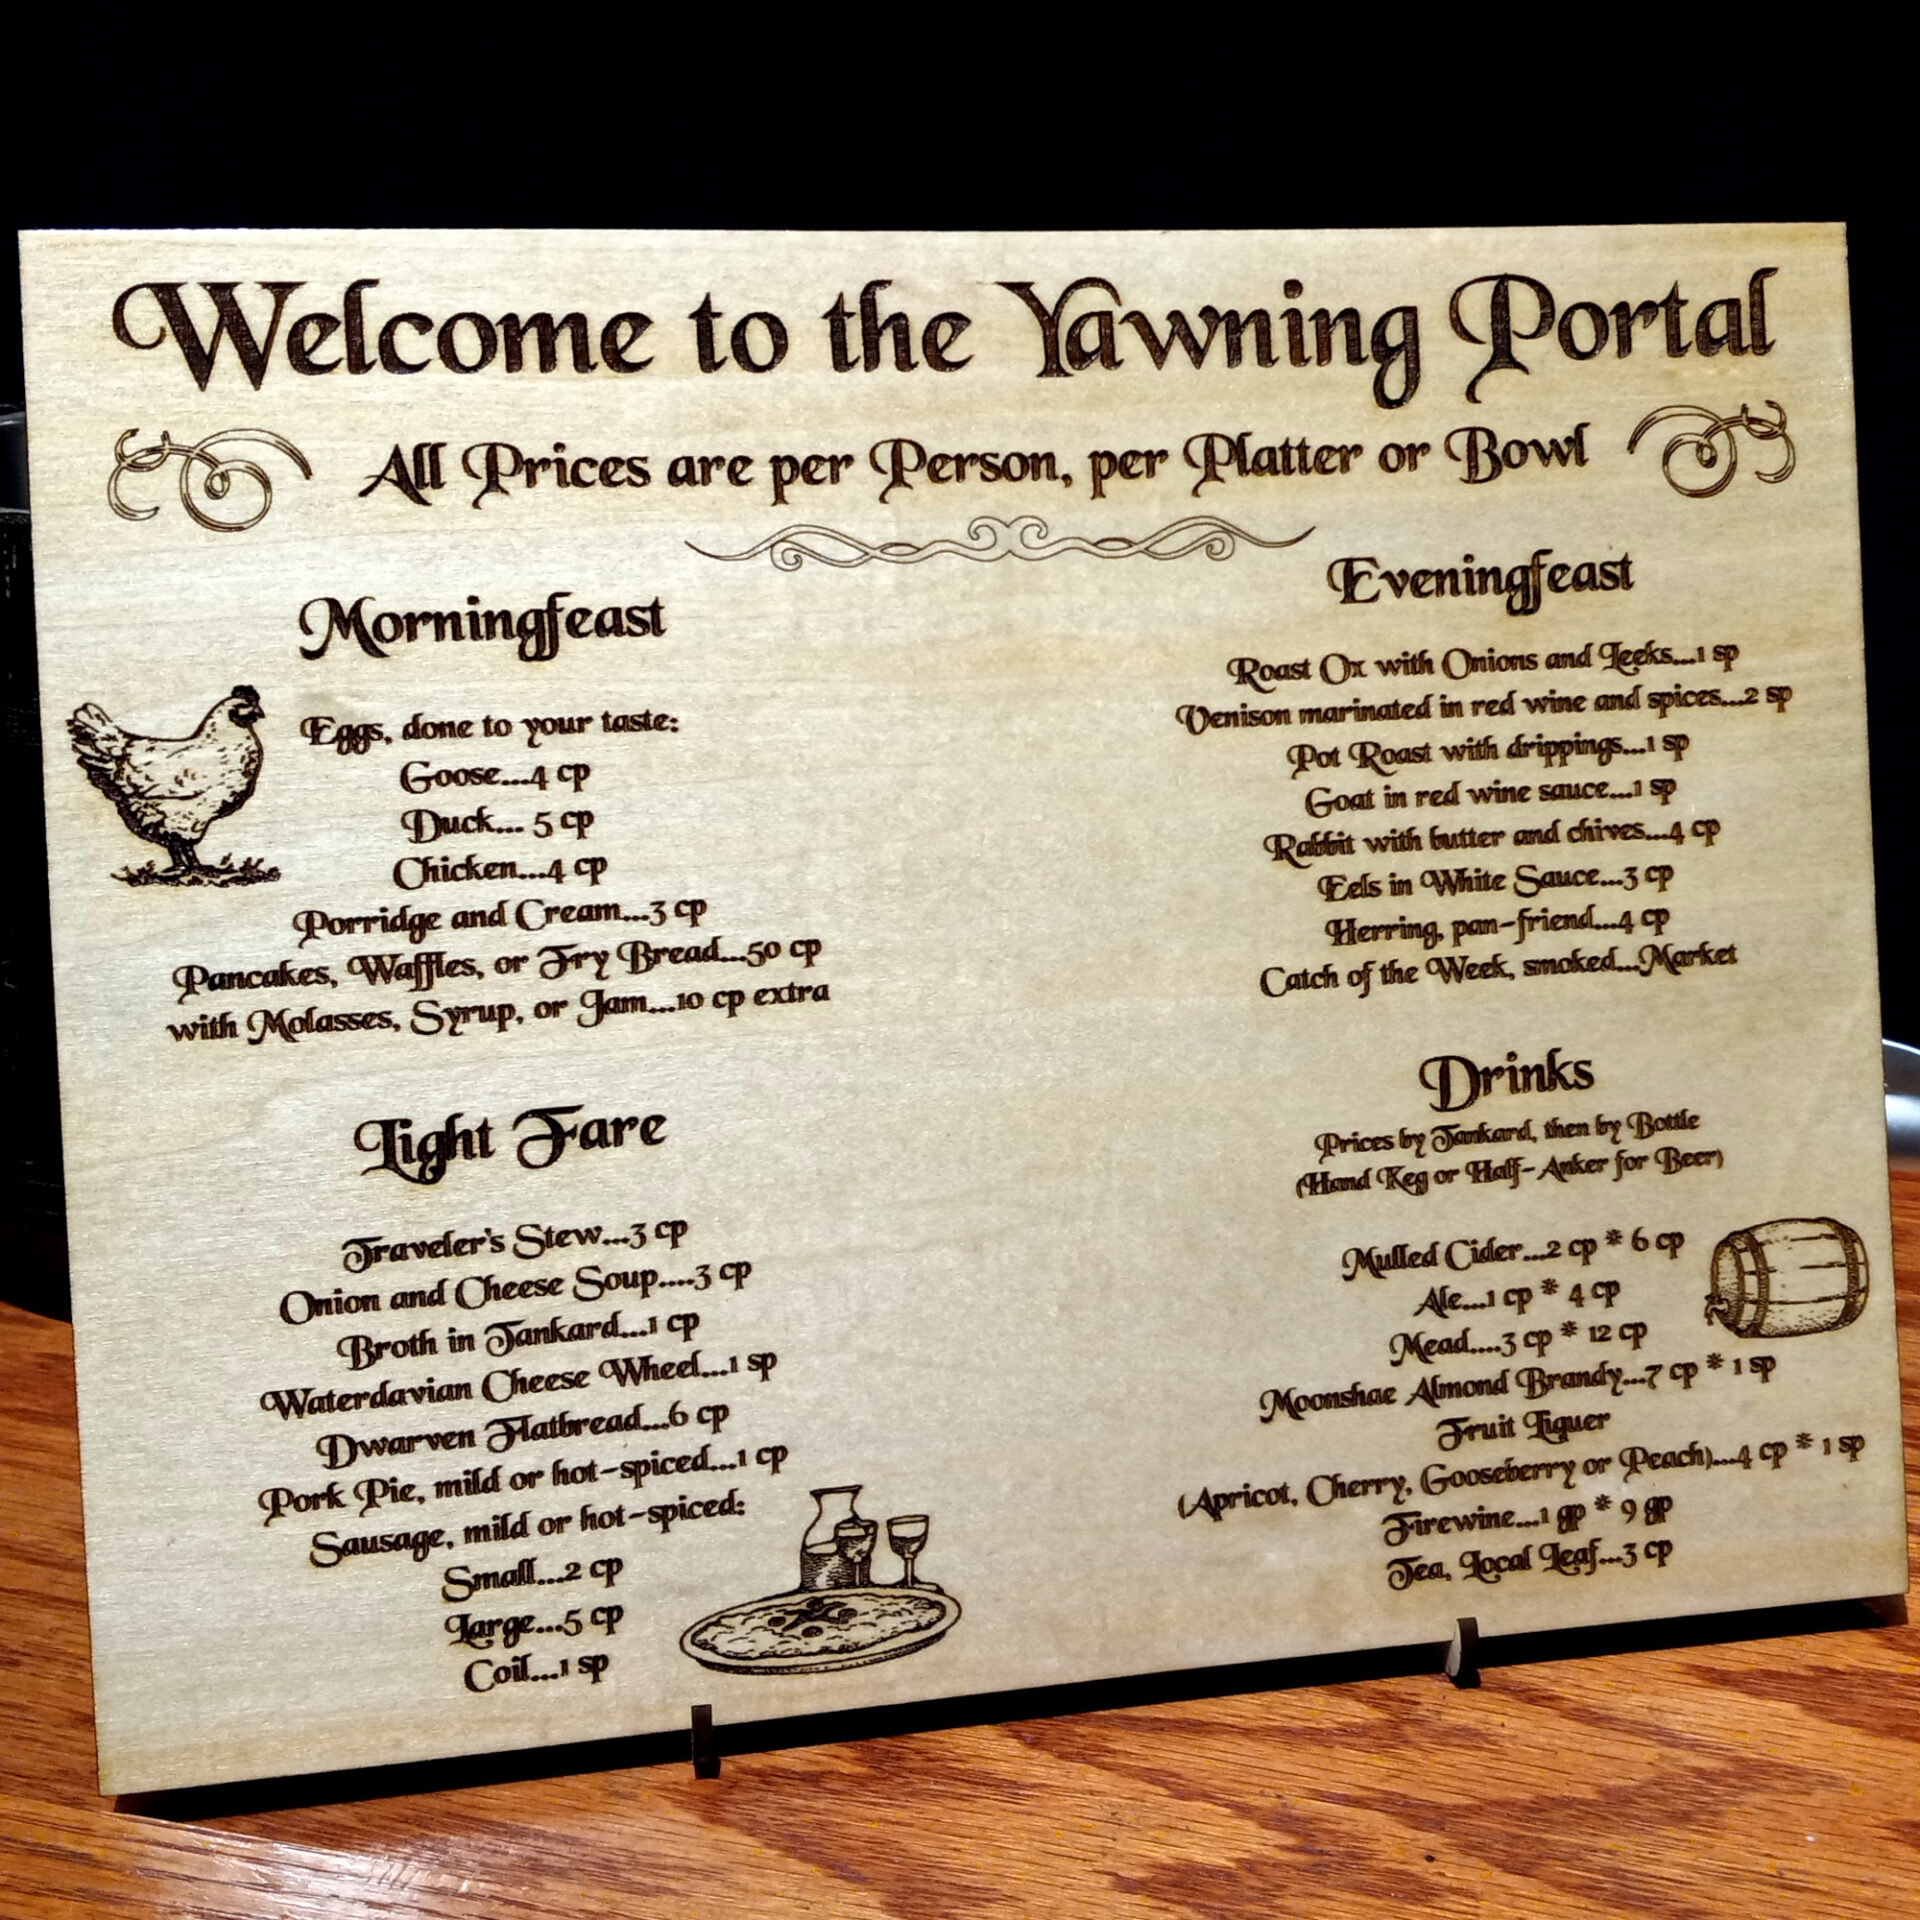 Welcome to the Yawning Portal
All Prices are per Person, per Platter or Bowl
Morningfeast
Eggs, done to your taste:
Goose...4 cp
Duck... 5 cp
Chicken...4 cp
Porridge and Cream...3 cp
Pancakes, Waffles, or Fry Bread...50 cp
with Molasses, Syrup, or Jam...10 cp extra
Light Fare
Traveler's Stew...3 cp
Onion and Cheese Soup....3 cp
Broth in Tankard...1 cp
Waterdavian Cheese Wheel...1 sp
Dwarven Flatbread...6 cp
Pork Pie, mild or hot-spiced...1 cp
Sausage, mild or hot-spiced:
Small...2 cp
Large...5 cp
Coil...1 sp
Eveningfeast
Roast Ox with Onions and Leeks...1 sp
Venison marinated in red wine and spices...2 sp
Pot Roast with drippings...1 sp
Goat in red wine sauce...1 sp
Rabbit with butter and chives...4 cp
Eels in White Sauce...3 cp
Herring, pan-friend...4 cp
Catch of the Week, smoked...Market
Drinks
Prices by Tankard, then by Bottle
(Hand Keg or Half-Anker for Beer)
Mulled Cider...2 cp * 6 cp
Ale...1 cp * 4 cp
Mead....3 cp * 12 cp
Moonshae Almond Brandy...7 cp * 1 sp
Fruit Liquer
(Apricot, Cherry, Gooseberry or Peach)...4 cp * 1 sp
Firewine...1 gp * 9 gp
Tea, Local Leaf...3 cp